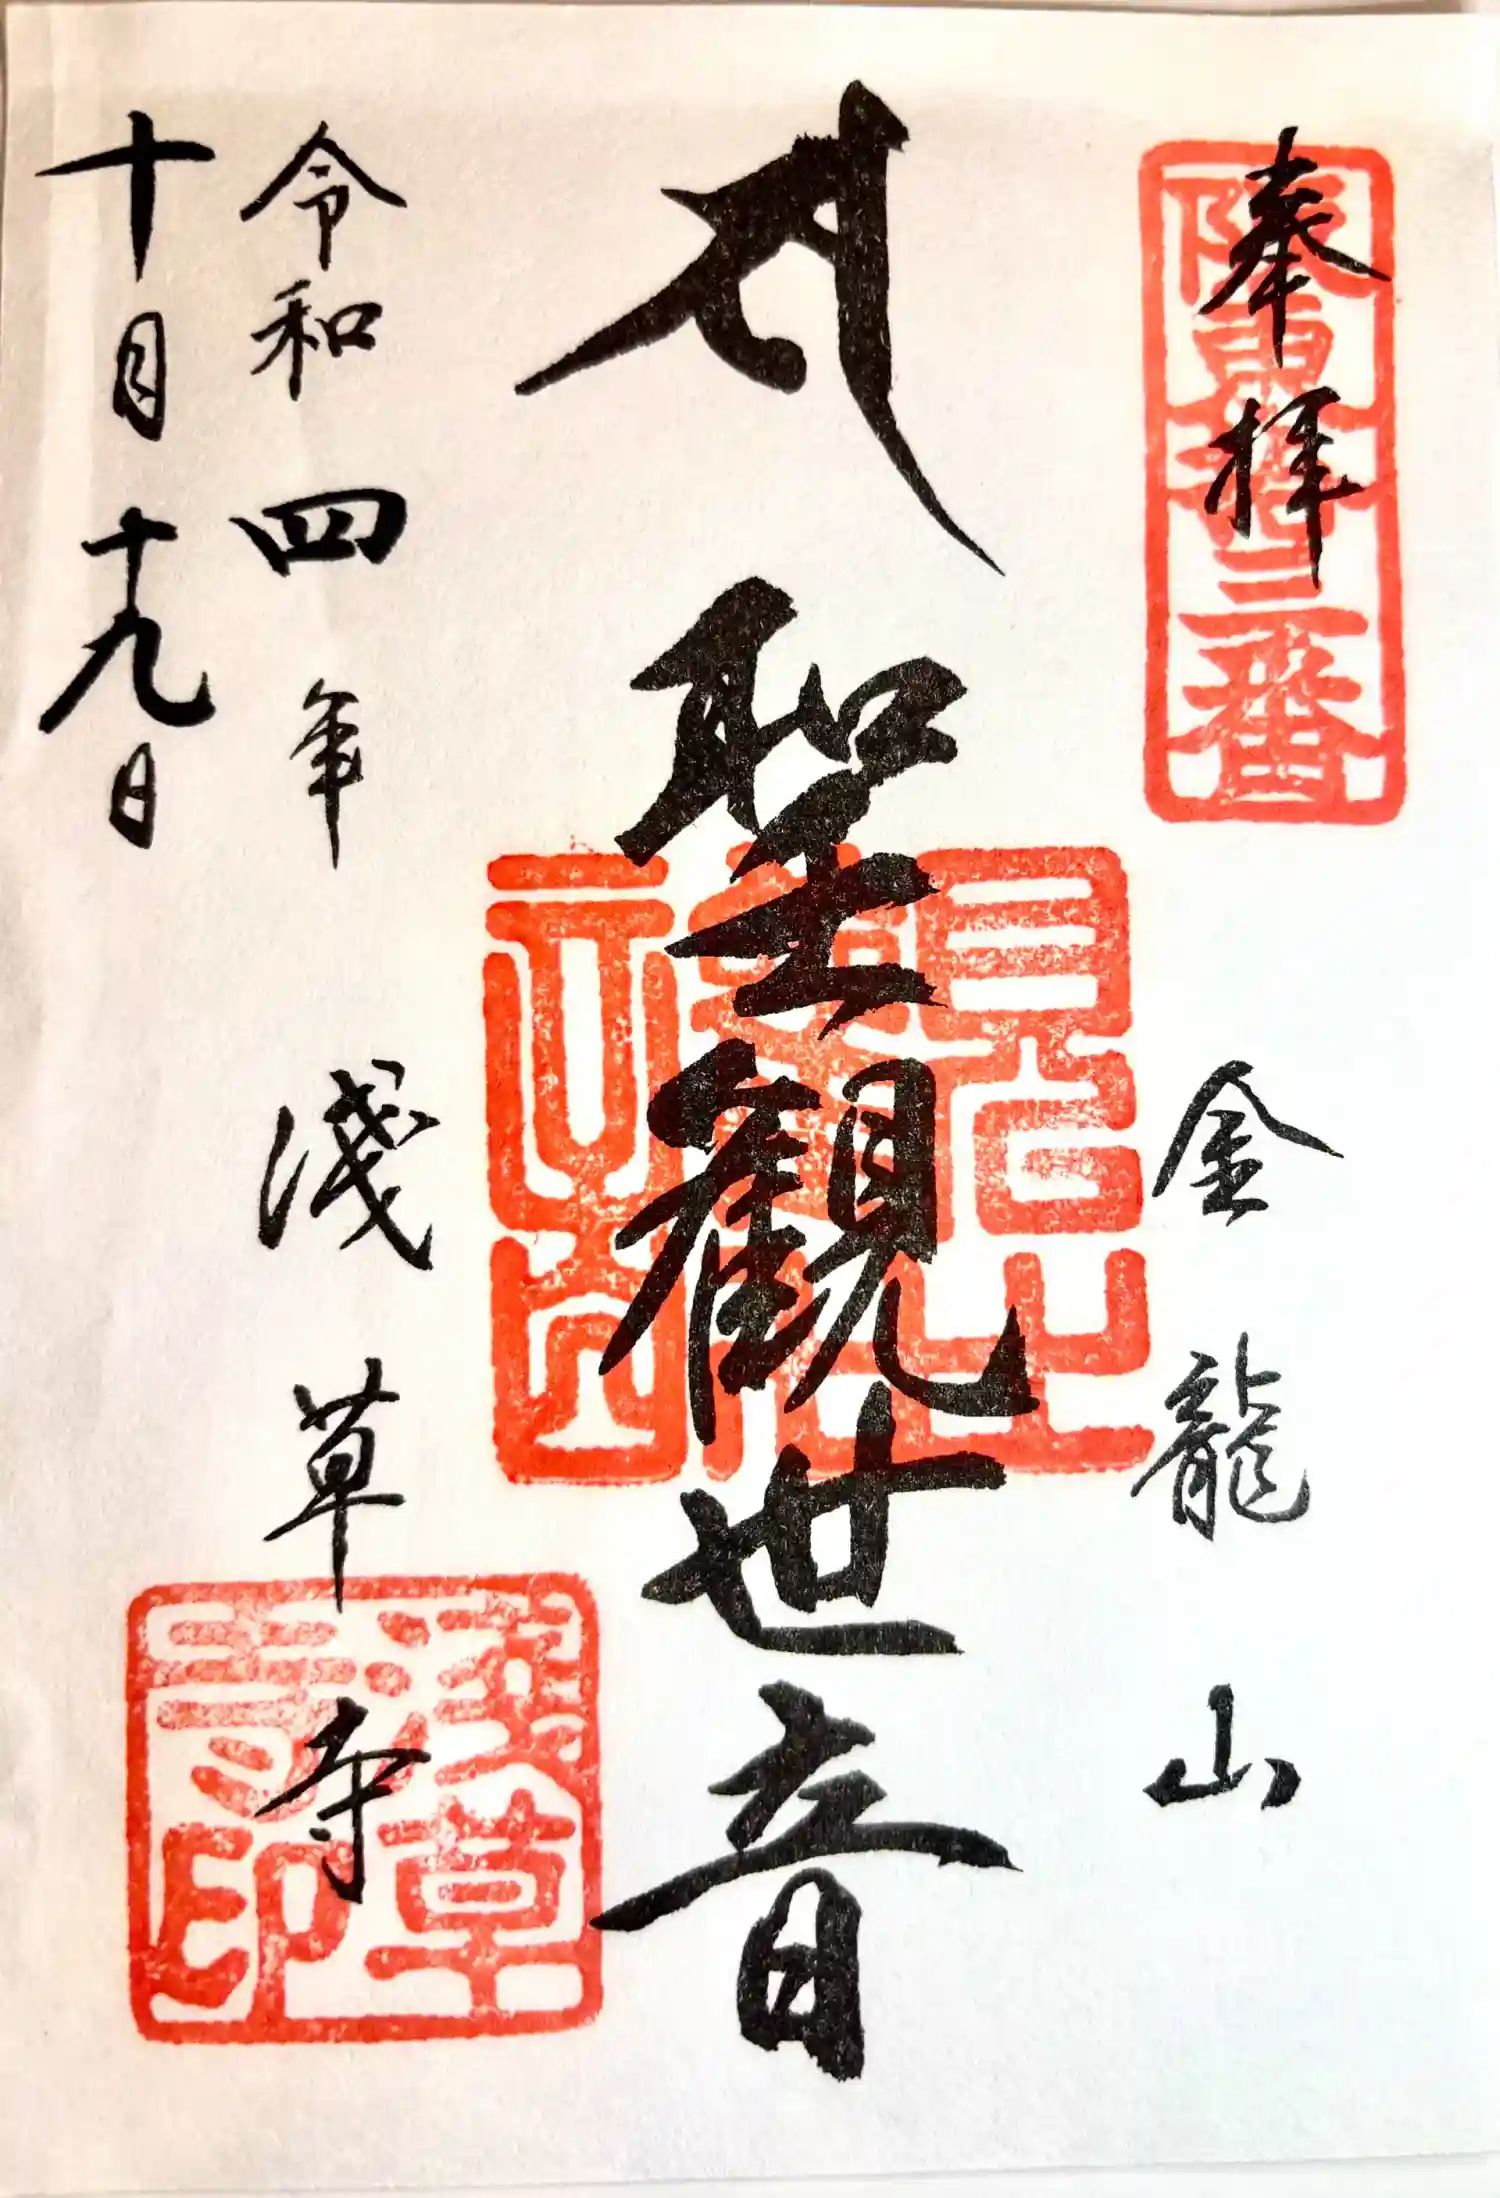 奉拝
阪東拾三番
金龍山
聖観世音
令和四年
十月十九日
淺草寺
淺草
寺印